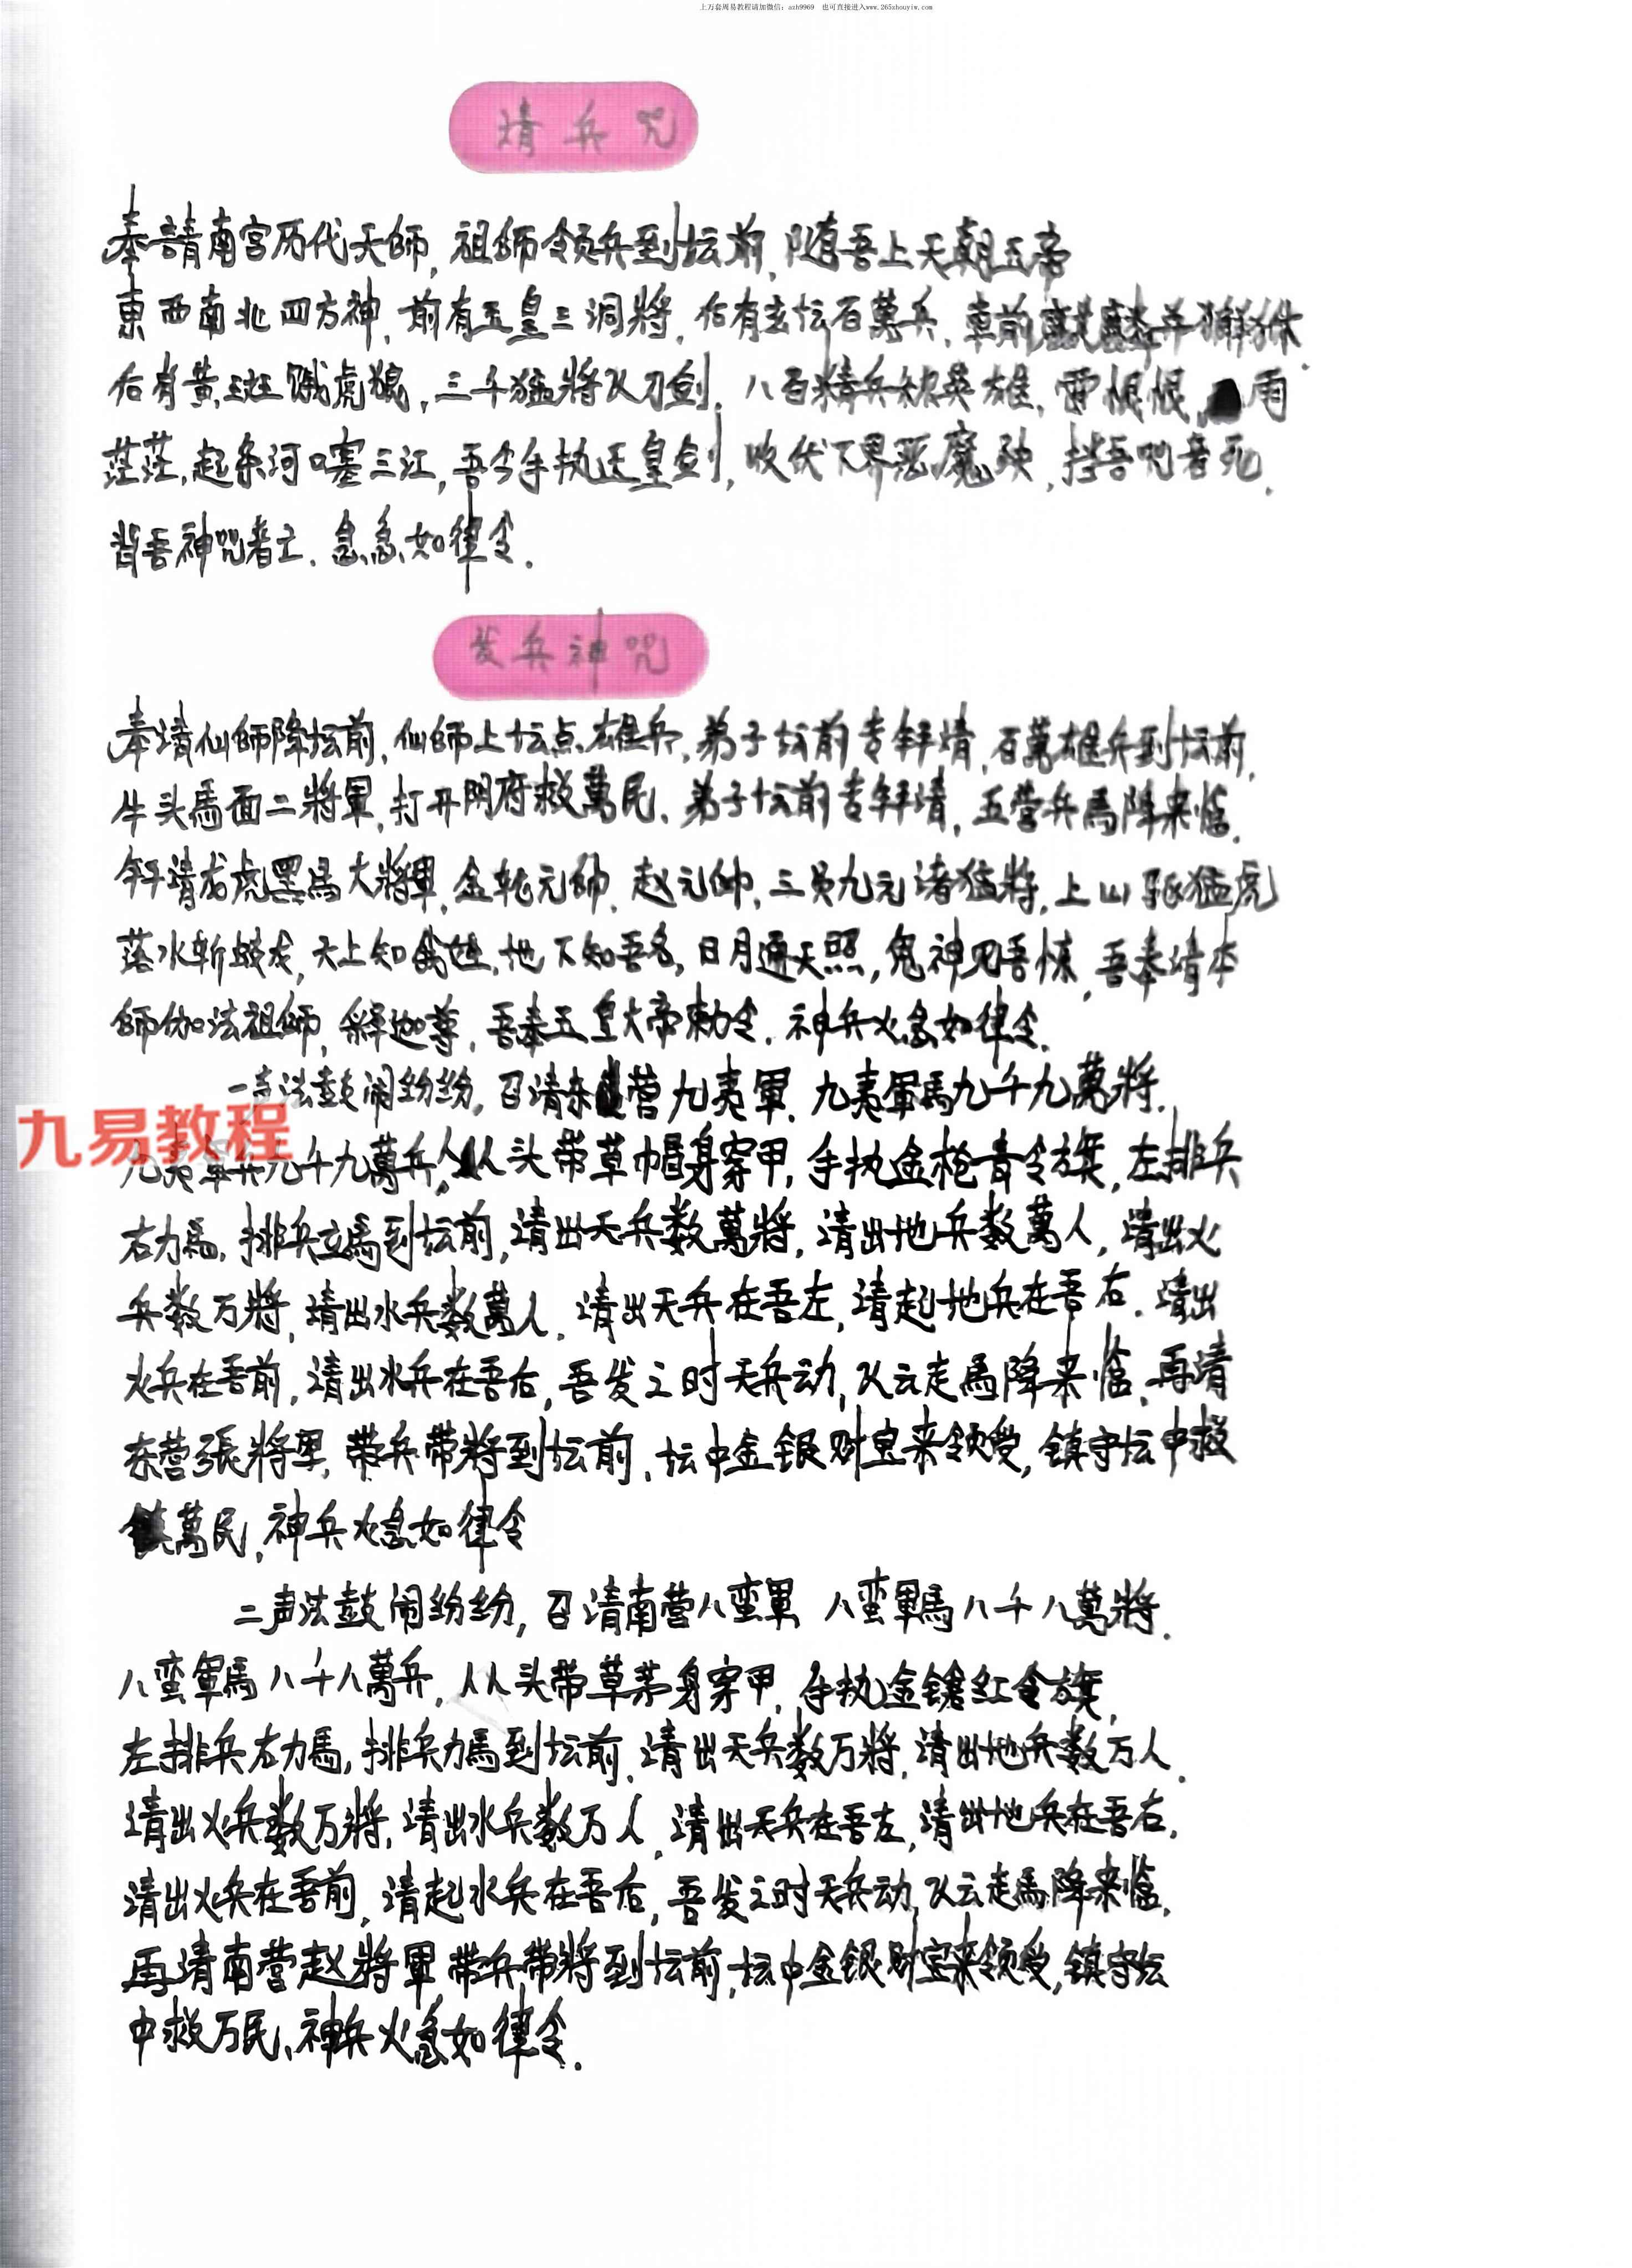 上万套周易教程请加微信：azh9969 也可直接进入www.265zhouyiw.com
请兵咒
奉請南宫历代天師,祖師领兵到坛前,随吾上天朝五帝
東西南北四方神,前有五皇三洞將,后有玄坛百萬兵,車前麒麟并獬
后有黄斑饿虎狼,三千猛將刀剑,八百精兵秋英雄,雷恨恨,雨
茫茫,起条河口塞三江,吾今手执正皇剑,收伏下界恶魔殃,挡吾咒者死.
背吾神咒者亡.急急如律令.
发兵神咒
奉请仙師降坛前,仙師上坛点雄兵,弟子坛前专拜请,百萬雄兵到坛前,
牛头馬面二將軍,打开阴府救萬民.弟子坛前专拜请,五营兵馬降来临.
拜请龙虎黑馬大將軍,金轮元帥,赵元帥,三员九元诸猛將,上山猛虎
落水斩蛟龙,天上知吾姓,地下知吾名,日月通天照,鬼神见吾惊,吾奉请本
師伽法祖師,释迦尊,吾奉五皇大帝勅令.神兵火急如律令.
一声法鼓闹纷纷,召请东营九夷軍.九夷軍馬九千九萬將.
九易教程
九夷軍兵九千九萬兵,人从头带草帽身穿甲,手执金枪青令旗,左排兵
右力馬,排兵立馬到坛前,请出天兵数萬將,请出地兵数萬人,请出火
兵数万將,请出水兵数萬人,请出天兵在吾左,请起地兵在吾右.请出
火兵在吾前,请出水兵在吾后,吾发之时天兵动,从云走馬降来临,再请
东营張將軍,带兵带將到坛前,坛中金银财宝来领受,镇守坛中救
萬民,神兵火急如律令
二声法鼓闹纷纷,召请南营八蛮軍 八蛮軍馬八千八萬將.
八蛮軍馬八千八萬兵,人从头带草茅身穿甲,手执金鎗红令旗,
左排兵右力馬,排兵力馬到坛前,请出天兵数万將,请出地兵数万人.
请出火兵数万將,请出水兵数万人,请出天兵在吾左,请出地兵在吾右,
请出火兵在吾前,请起水兵在吾后,吾发之时天兵动,从云走馬降来临,
再请南营赵將軍,带兵带將到坛前,坛中金银财宝来领受,镇守坛
中救万民,神兵火急如律令.